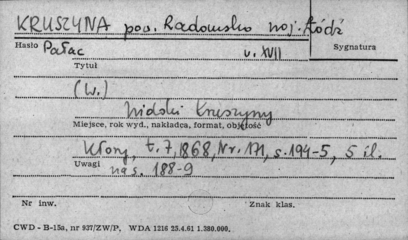 KRUSZYNA pow. Radomsko woj. Łódź
Hasło Pałac w. XVII Sygnatura
Tytuł
(W.)
Widoki Kruszyny
Miejsce, rok wyd., nakładca, format, objętość
Kłosy, t. 7, 1868, Nr. 171, s. 194-5, 5 il.
Uwagi na s. 188-9
Nr inw. Znak klas.
CWD - B-15a, nr 937/ZW/P, WDA 1216 25.4.61 1.380.000.